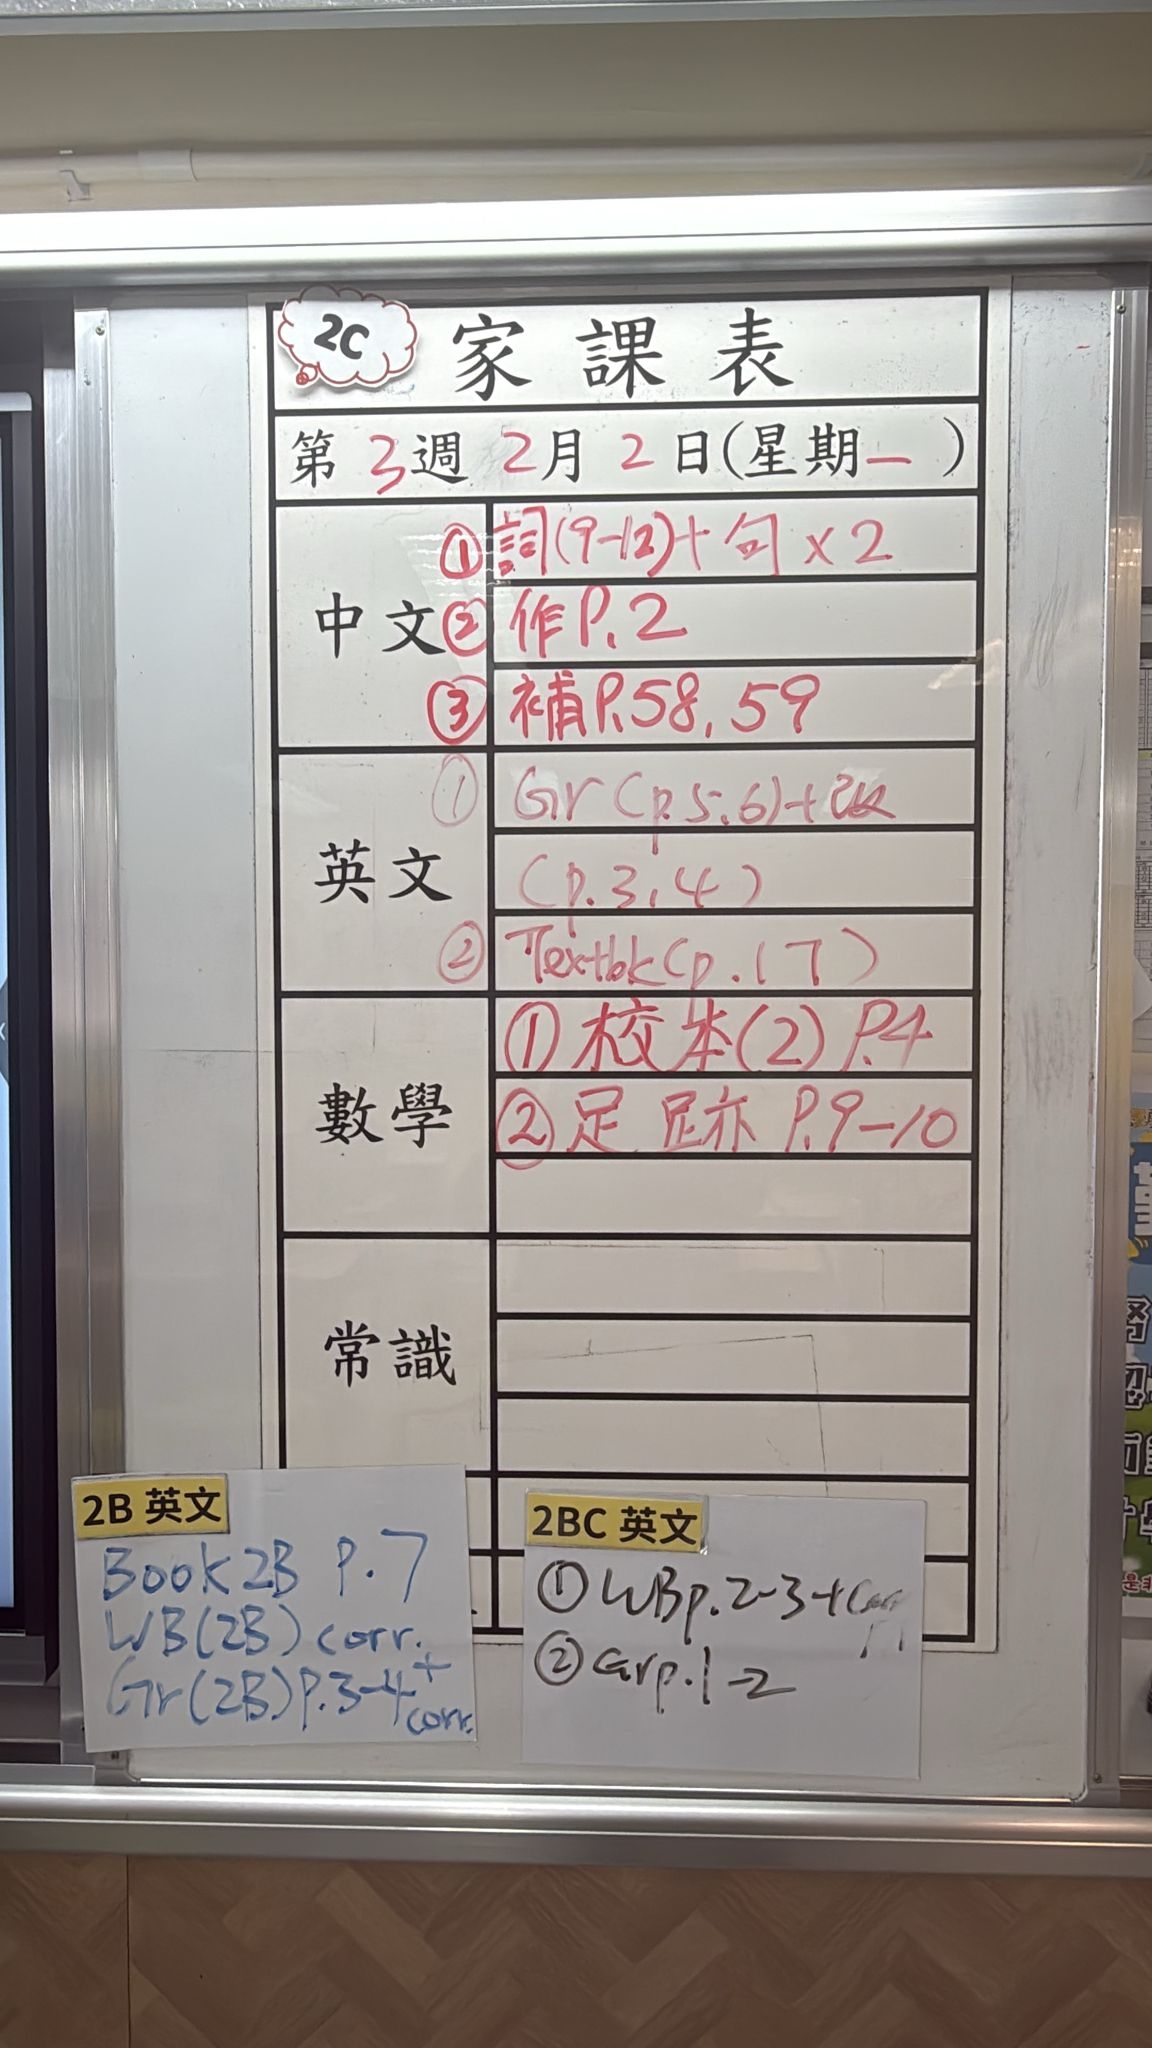 2C 家課表
第3週 2月2日(星期一)
中文
① 詞(9-12)+句x2
② 作P.2
③ 補P.58,59
英文
① Gr (p.5,6)+改
(p.3,4)
② Textbk(p.17)
數學
① 校本(2) P.4
② 足跡 P.9-10
常識
2B 英文
Book 2B P.7
WB(2B) corr.
Gr(2B)P.3-4+
corr.
2BC 英文
① WB p.2-3+
② Gr p.1-2